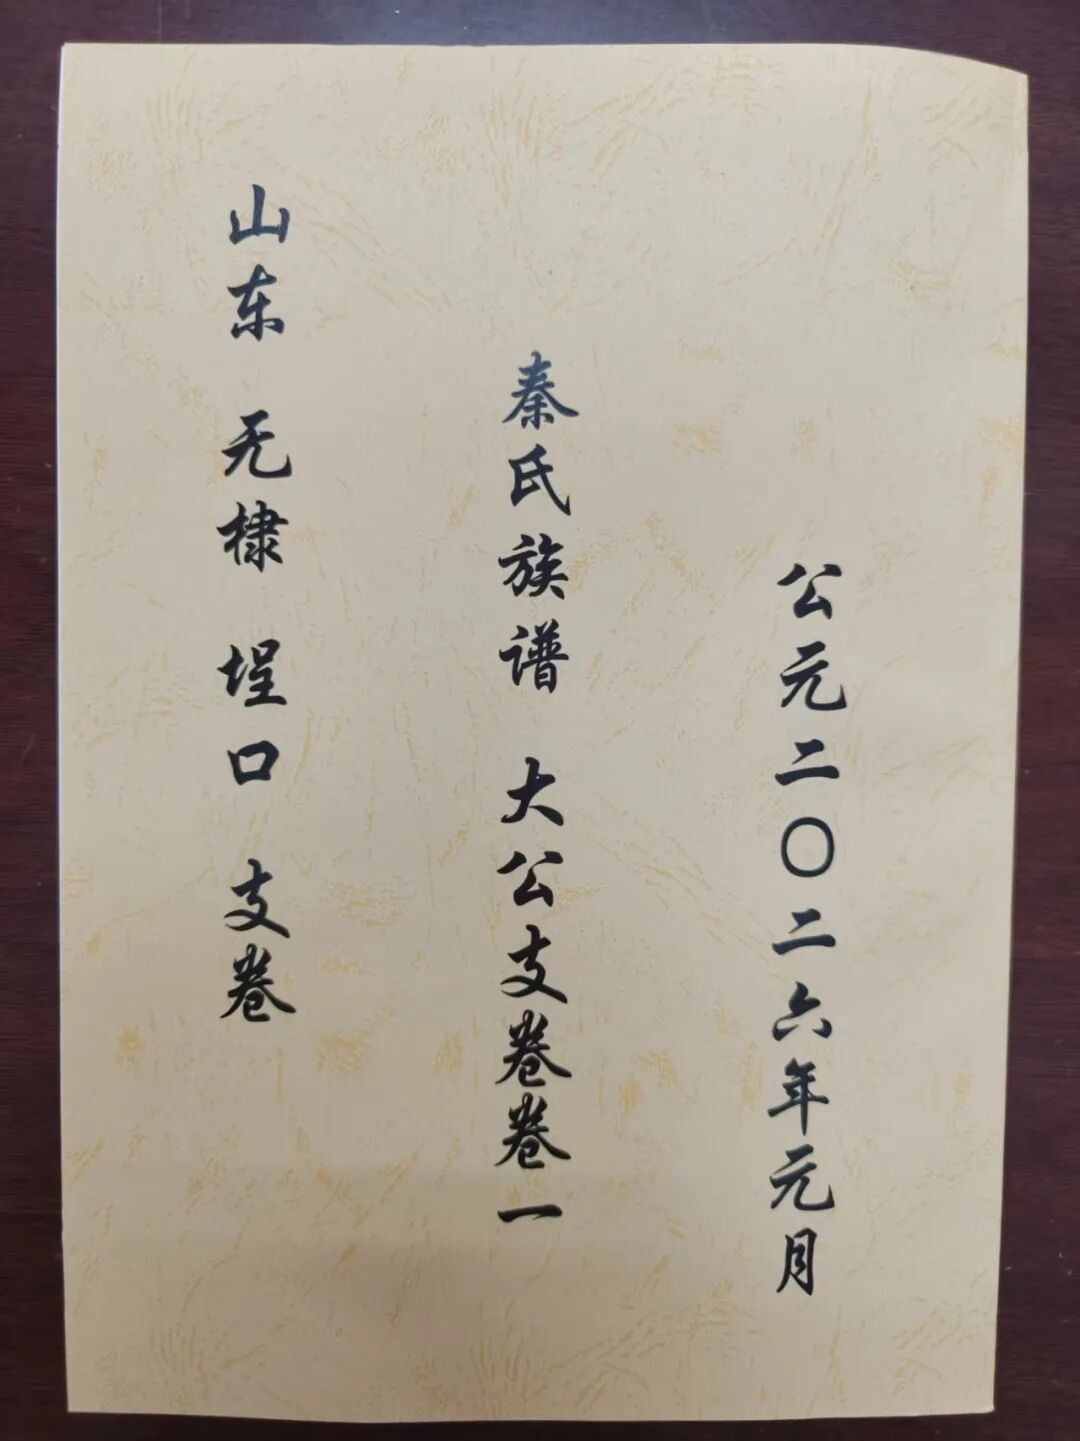 山东 无棣 埕口 支卷
秦氏族谱 大公支卷卷一
公元二〇二六年元月